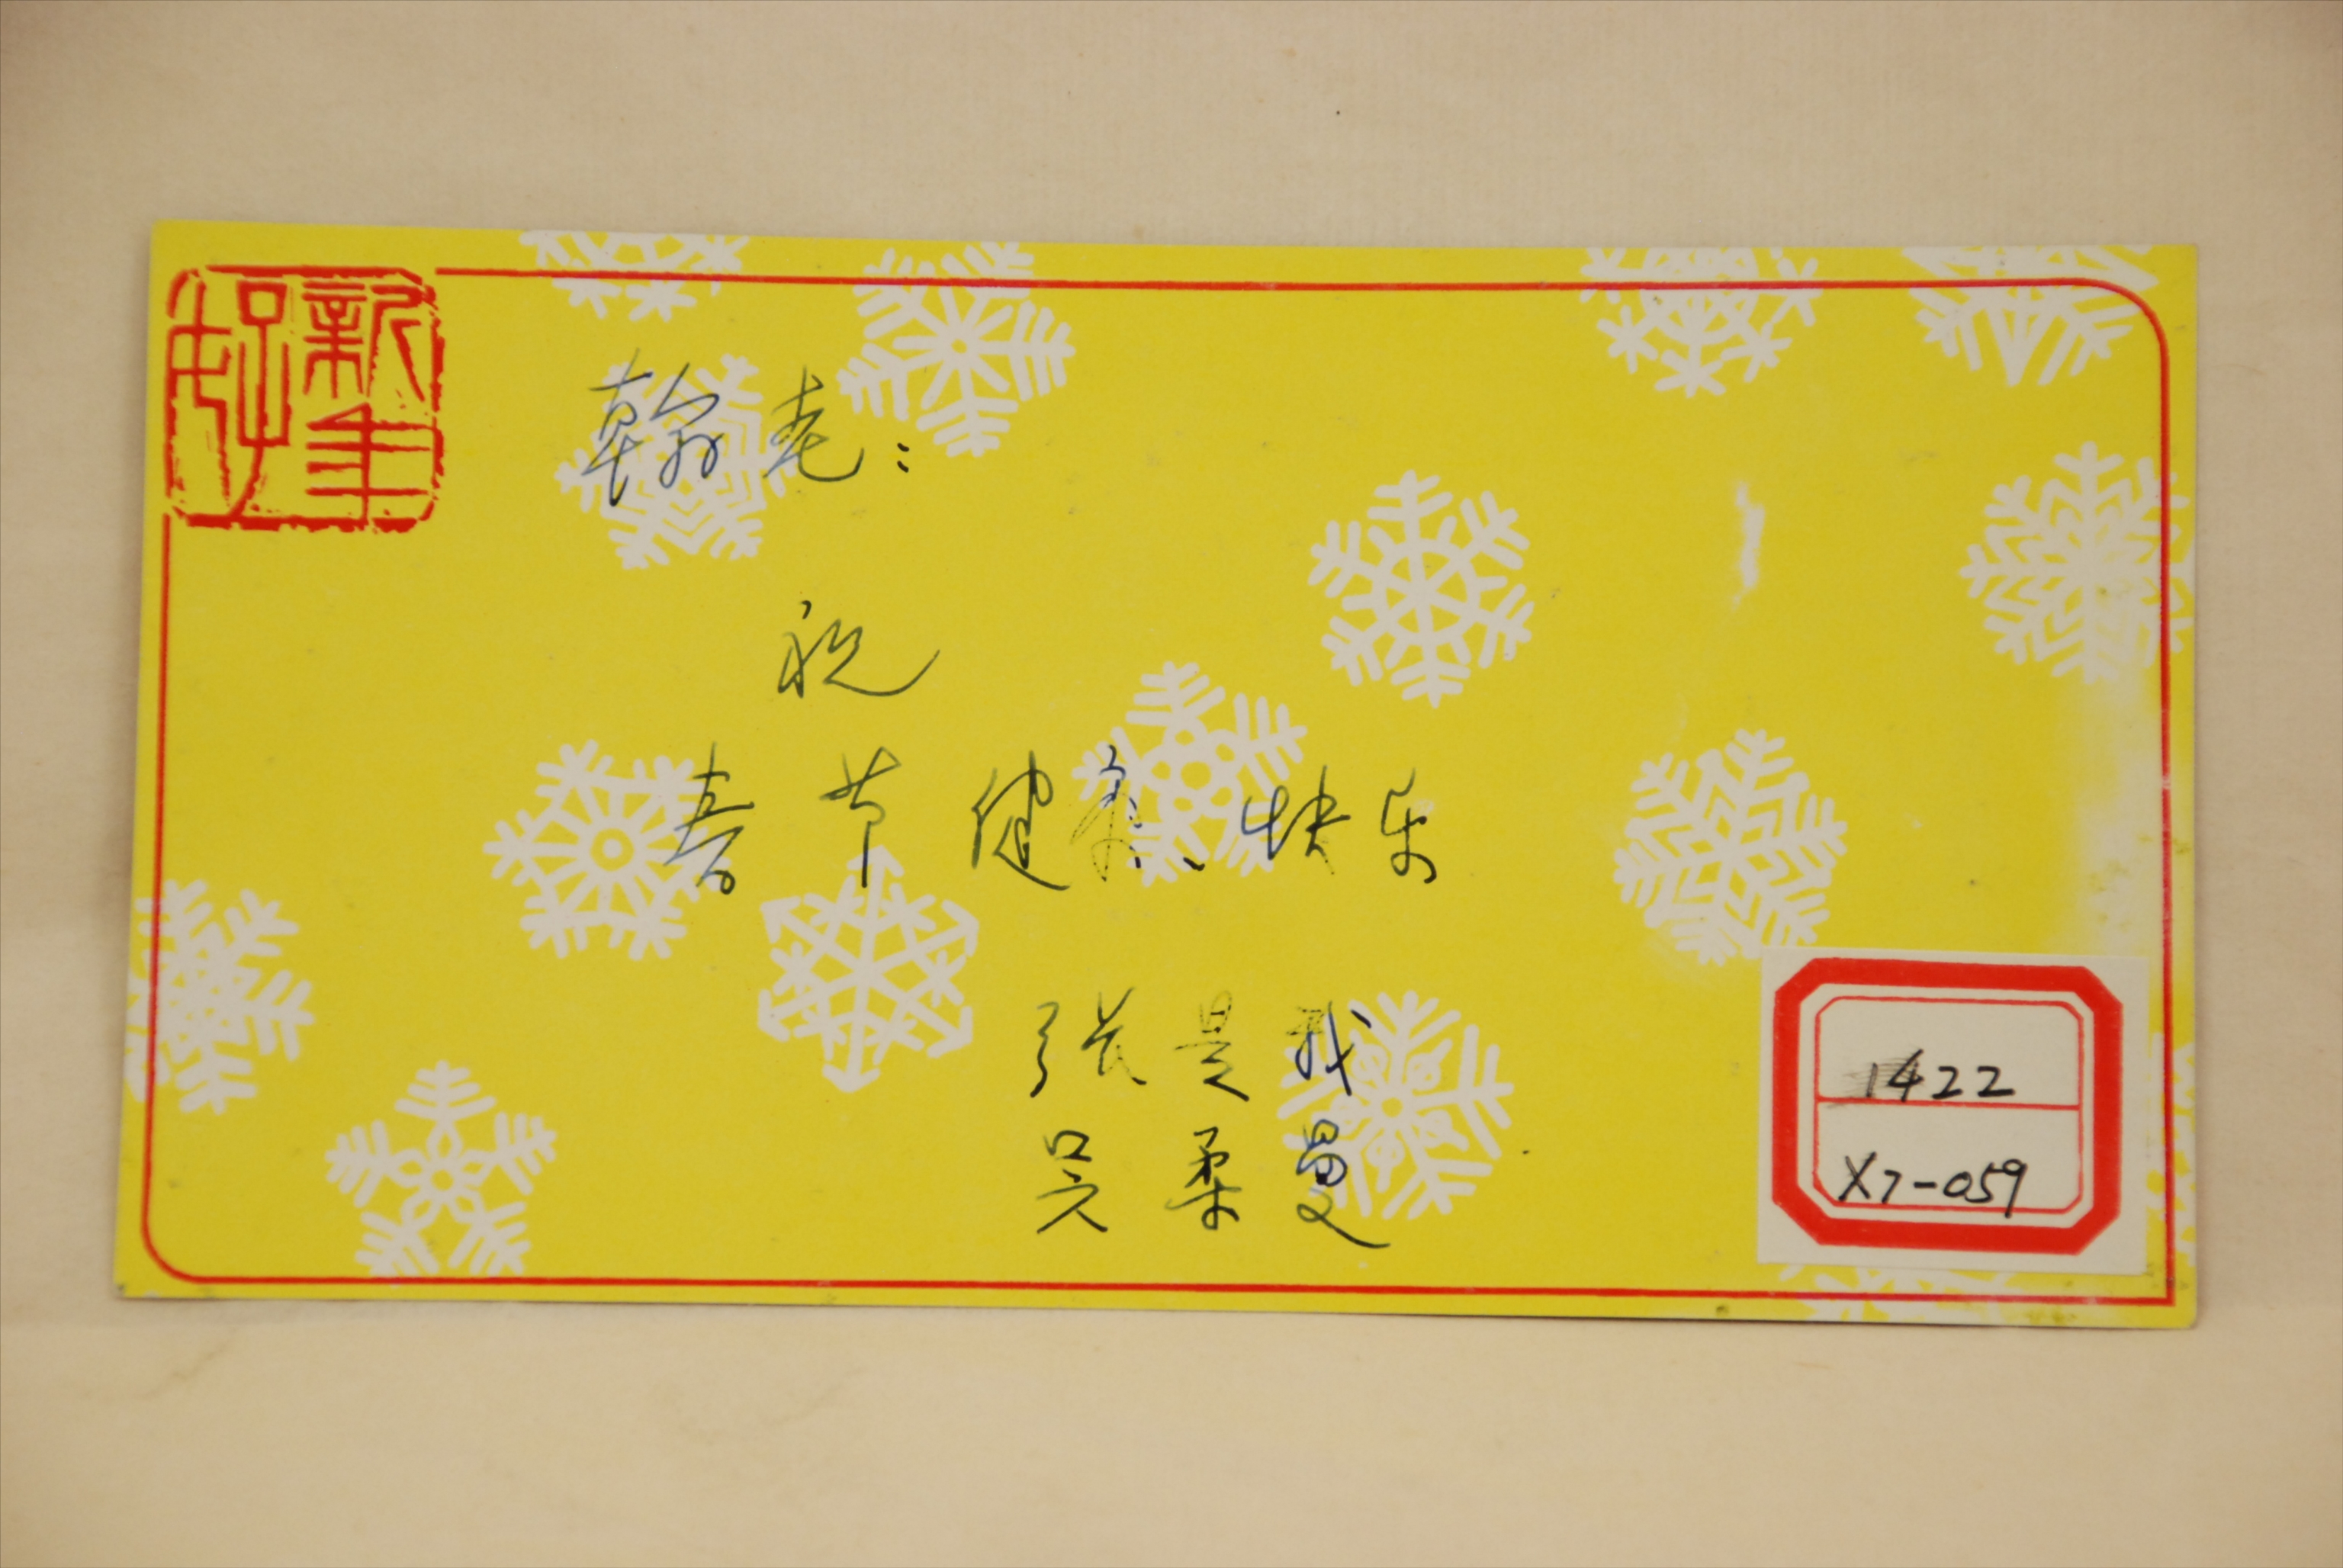 新年好
翰老：
祝
春节健康、快乐
张是我
吴柔曼
1422
X7-059